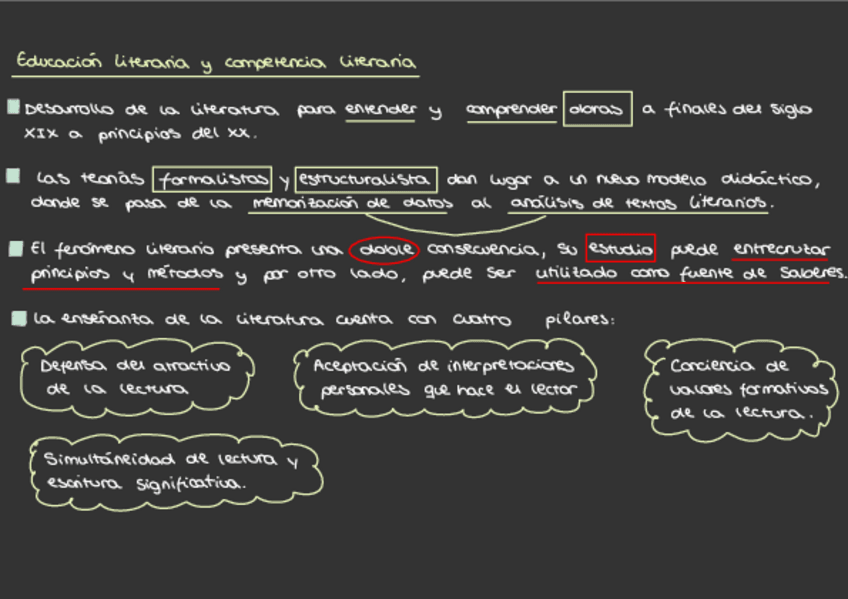 Educación literaria y competencia literaria
Desarrollo de la literatura para entender y comprender obras a finales del siglo
XIX a principios del XX.
Las teorías formalistas y estructuralista dan lugar a un nuevo modelo didáctico,
donde se pasa de la memorización de datos al análisis de textos literarios.
El fenómeno literario presenta una doble consecuencia, su estudio puede entrecruzar
principios y métodos y por otro lado, puede ser utilizado como fuente de saberes.
La enseñanza de la literatura cuenta con cuatro pilares:
Defensa del atractivo
de la lectura
Aceptación de interpretaciones
personales que hace el lector
Conciencia de
valores formativos
de la lectura.
Simultáneidad de lectura y
escritura significativa.